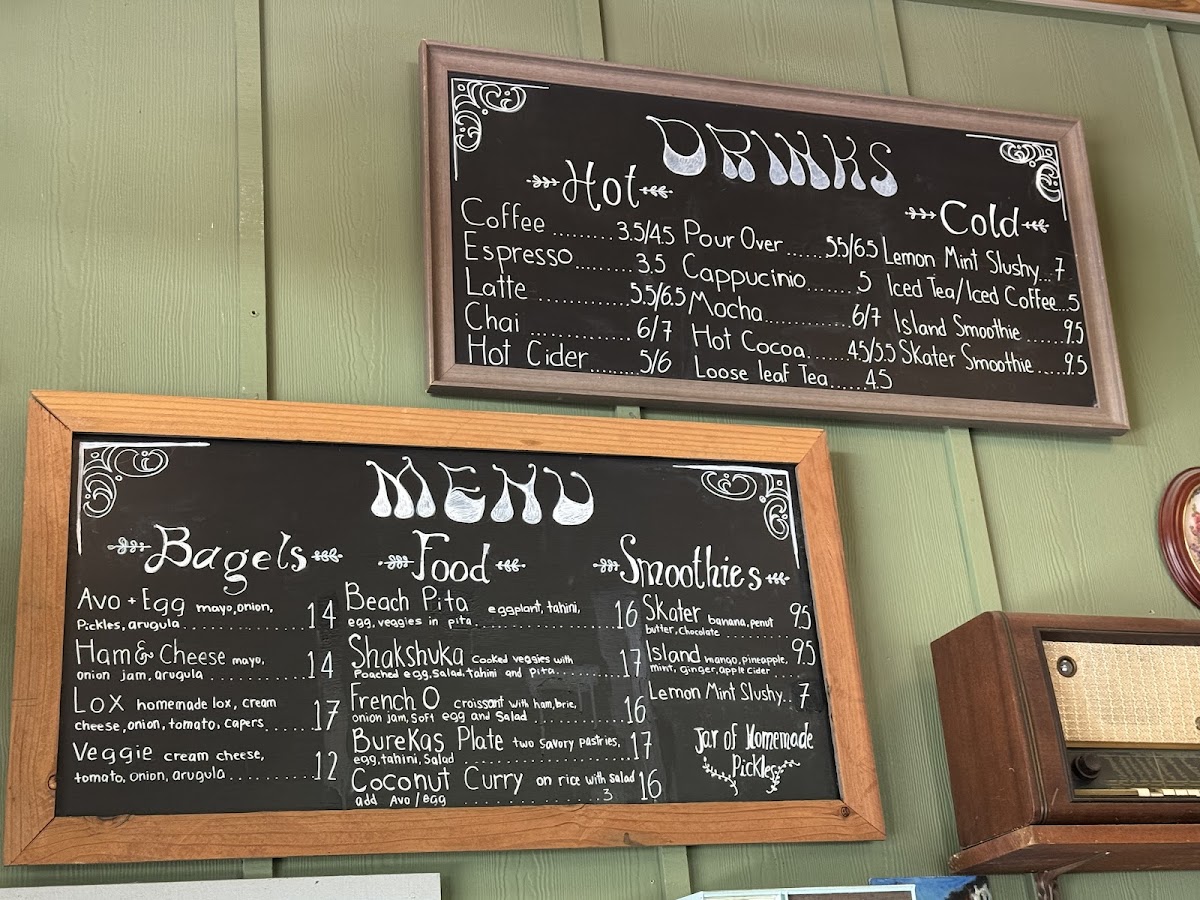 DRINKS
Hot
Coffee ......... 3.5/4.5
Espresso......... 3.5
Latte ............ 5.5/6.5
Chai ............ 6/7
Hot Cider ........ 5/6
Pour Over ...... 5.5/6.5
Cappucinio....... 5
Mocha............. 6/7
Hot Cocoa...... 4.5/5.5
Loose leaf Tea..... 4.5
Cold
Lemon Mint Slushy... 7
Iced Tea/Iced Coffee...5
Island Smoothie ...... 9.5
Skater Smoothie..... 9.5
MENU
Bagels
Avo + Egg mayo, onion, 14
Pickles, arugula
Ham & Cheese mayo, 14
onion jam, arugula
Lox homemade lox, cream 17
cheese, onion, tomato, capers
Veggie cream cheese, 12
tomato, onion, arugula
Food
Beach Pita eggplant, tahini, 16
egg, veggies in pita
Shakshuka Cooked veggies with 17
Poached egg, Salad, tahini and pita
French O croissant with ham, brie, 16
onion jam, soft egg and Salad
Burekas Plate two savory pastries, 17
egg, tahini, Salad
Coconut Curry on rice with salad 16
add Avo/egg ............ 3
Smoothies
Skater banana, penut 9.5
butter, chocolate
Island mango, pineapple, 9.5
mint, ginger, apple cider
Lemon Mint Slushy.. 7
Jar of Homemade
Pickles